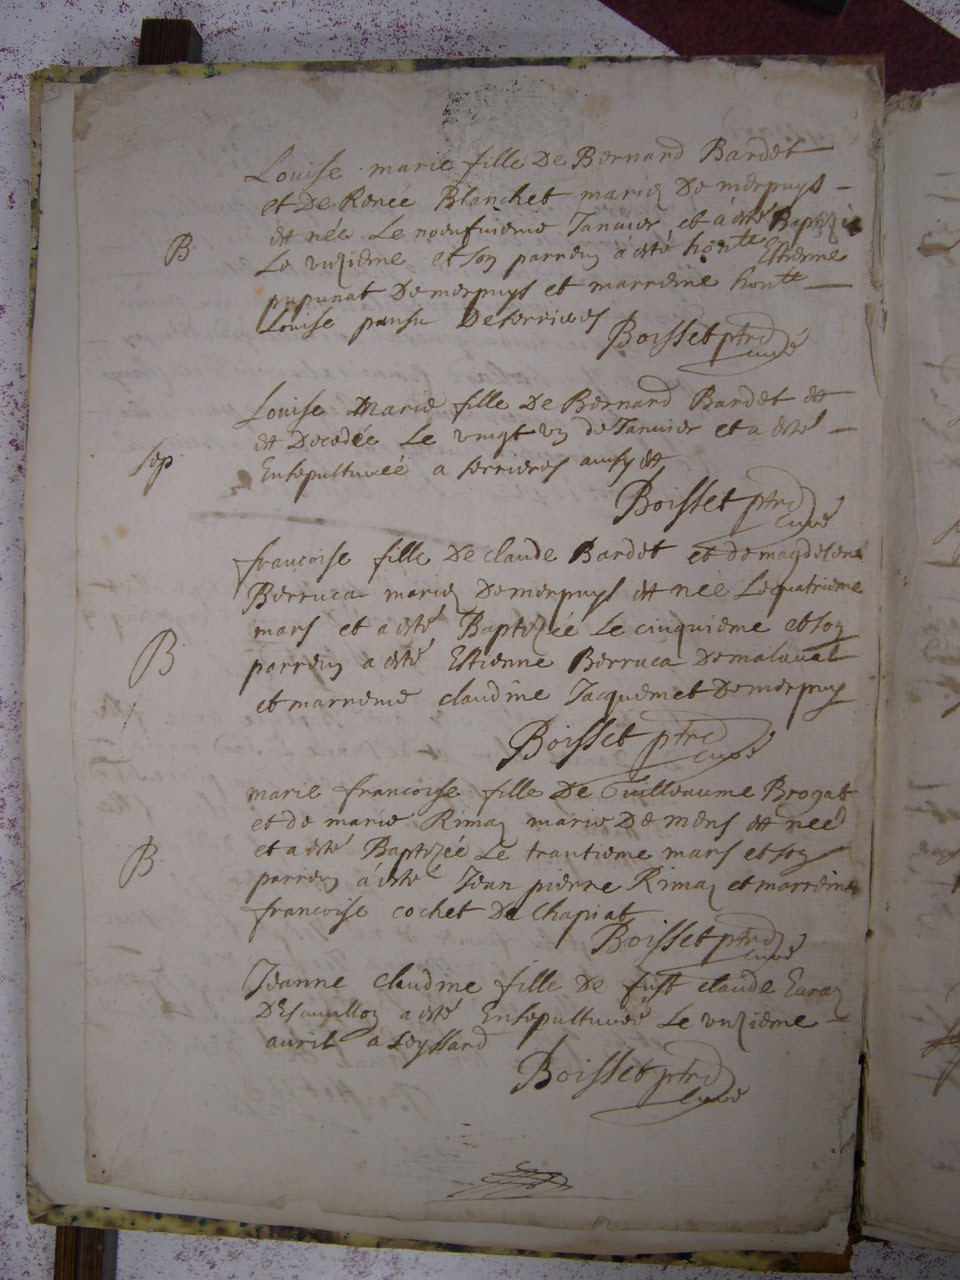 Louise marie fille De Bernard Bardet
et De Renée Blanchet mariez De merpuys
est née Le noeufuieme Januier et a esté Baptizée
B
Le vnzieme et son parrein a esté honte Estienne
pupunat Demerpuys et marreine honte
Louise pansu Deserrieres
Boisset ptre
curé
Louise Marie fille De Bernard Bardet
est Decedée Le vingt vn de Januier et a esté
sep
Ensepulturéé a serrieres
Boisset ptre
curé
francoise fille De claude Bardet et de magdelene
Berruca mariez Demerpuys est née Lequatrieme
mars et a esté Baptizée Le cinquieme et son
B
parrein a esté Estienne Berruca Demalaual
et marreine claudine Jacquemet Demerpuys
Boisset ptre
curé
marie francoise fille De Guilleaume Brogat
et de marie Rimaz mariez De mens est née
et a esté Baptizée Le trantieme mars et son
B
parrein a esté Jean pierre Rimaz et marreine
francoise cochet De Chapiat
Boisset ptre
curé
Jeanne claudine fille De claude
a esté Ensepulturéé Le vnzieme
auril a Leyssard
Boisset ptre
curé